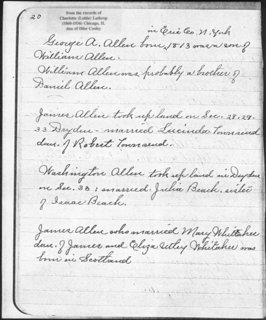 20
From the records of
Charlotte (Lottie) Lathrop
(1868-1956) Chicago, IL
dau of Dike Cooley
in Erie Co. N. York
George A. Allen born, 1813 was a son of
William Allen.
William Allen was probably a brother of
Daniel Allen.
James Allen took up land on Sec. 28-29-
33 Dryden - married Lucinda Townsend
dau. of Robert Townsend.
Washington Allen took up land in Dryden
on Sec. 33; married Julia Beach, sister
of Isaac Beach.
James Allen who married Mary Whitaker
dau. of James and Eliza Utley Whitaker was
born in Scotland